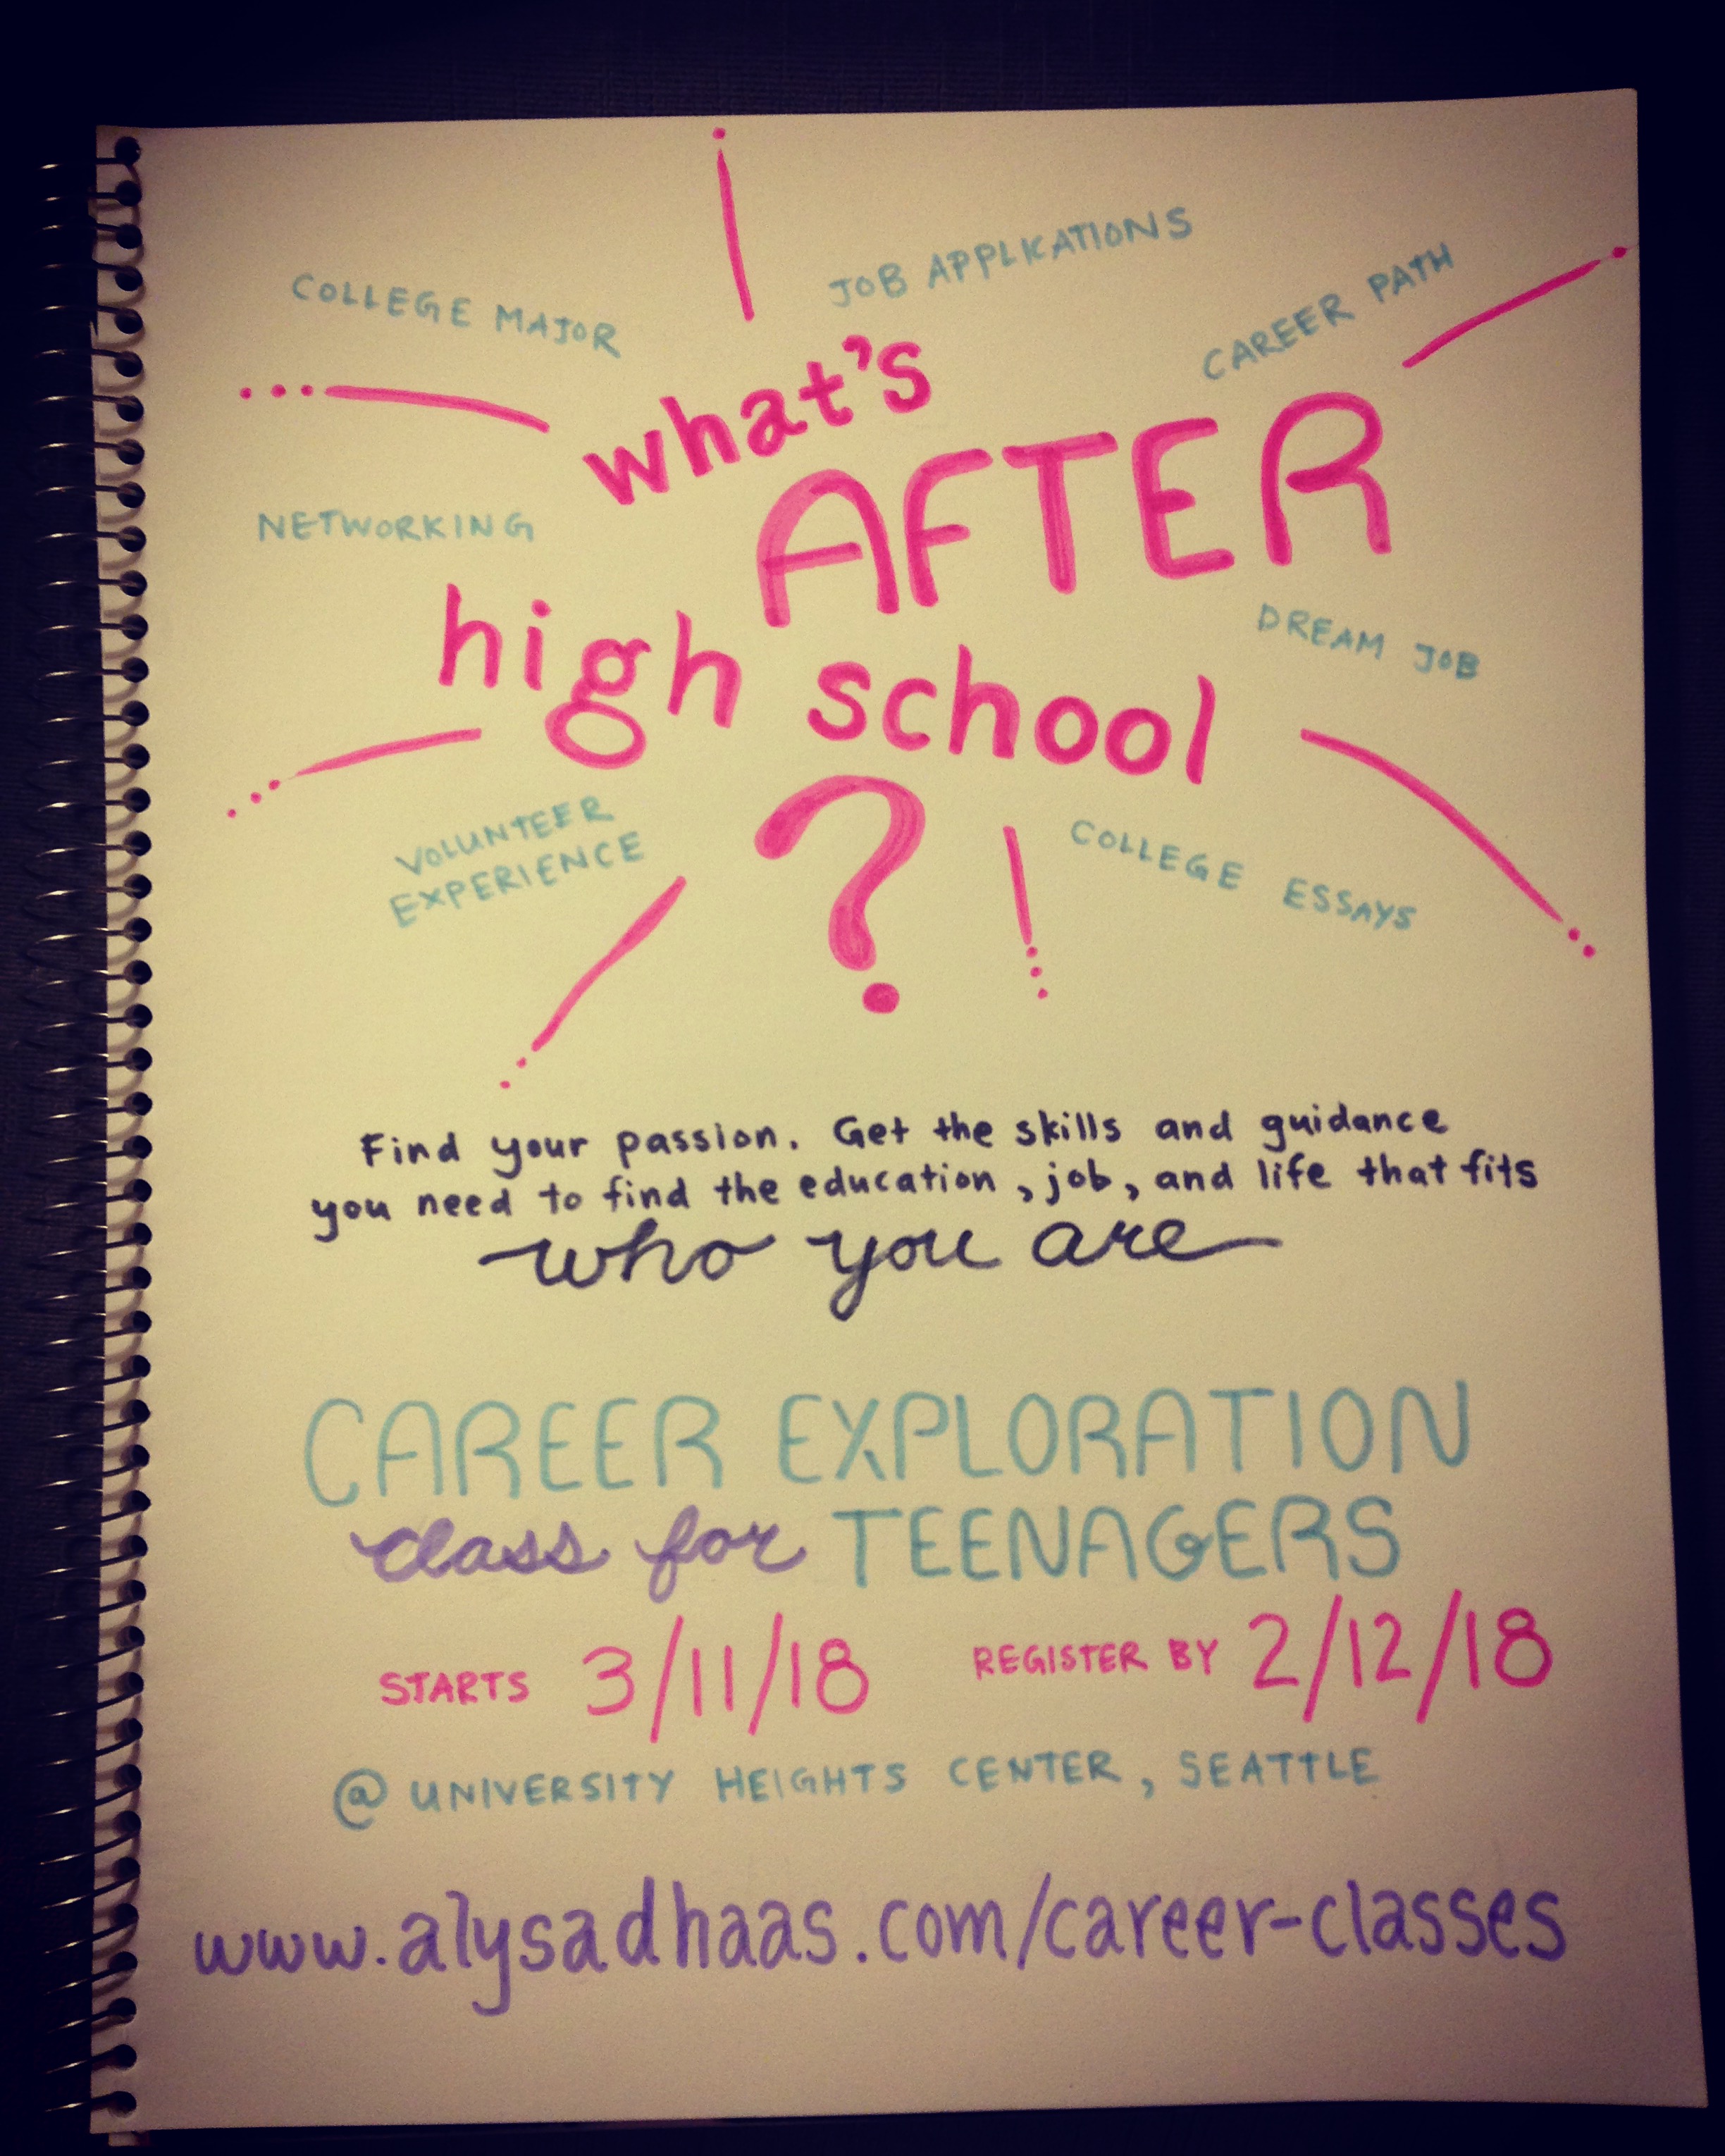 COLLEGE MAJOR
JOB APPLICATIONS
CAREER PATH
what's
AFTER
NETWORKING
high school
?
DREAM JOB
VOLUNTEER
EXPERIENCE
COLLEGE ESSAYS
Find your passion. Get the skills and guidance
you need to find the education, job, and life that fits
who you are
CAREER EXPLORATION
class for TEENAGERS
STARTS 3/11/18 REGISTER BY 2/12/18
@ UNIVERSITY HEIGHTS CENTER, SEATTLE
www.alysadhaas.com/career-classes